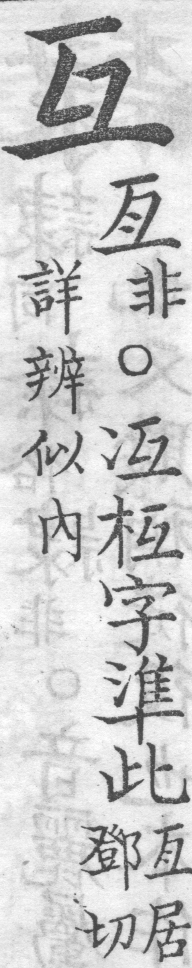 互
亙非○冱枑字準此亙居鄧切
詳辨似內